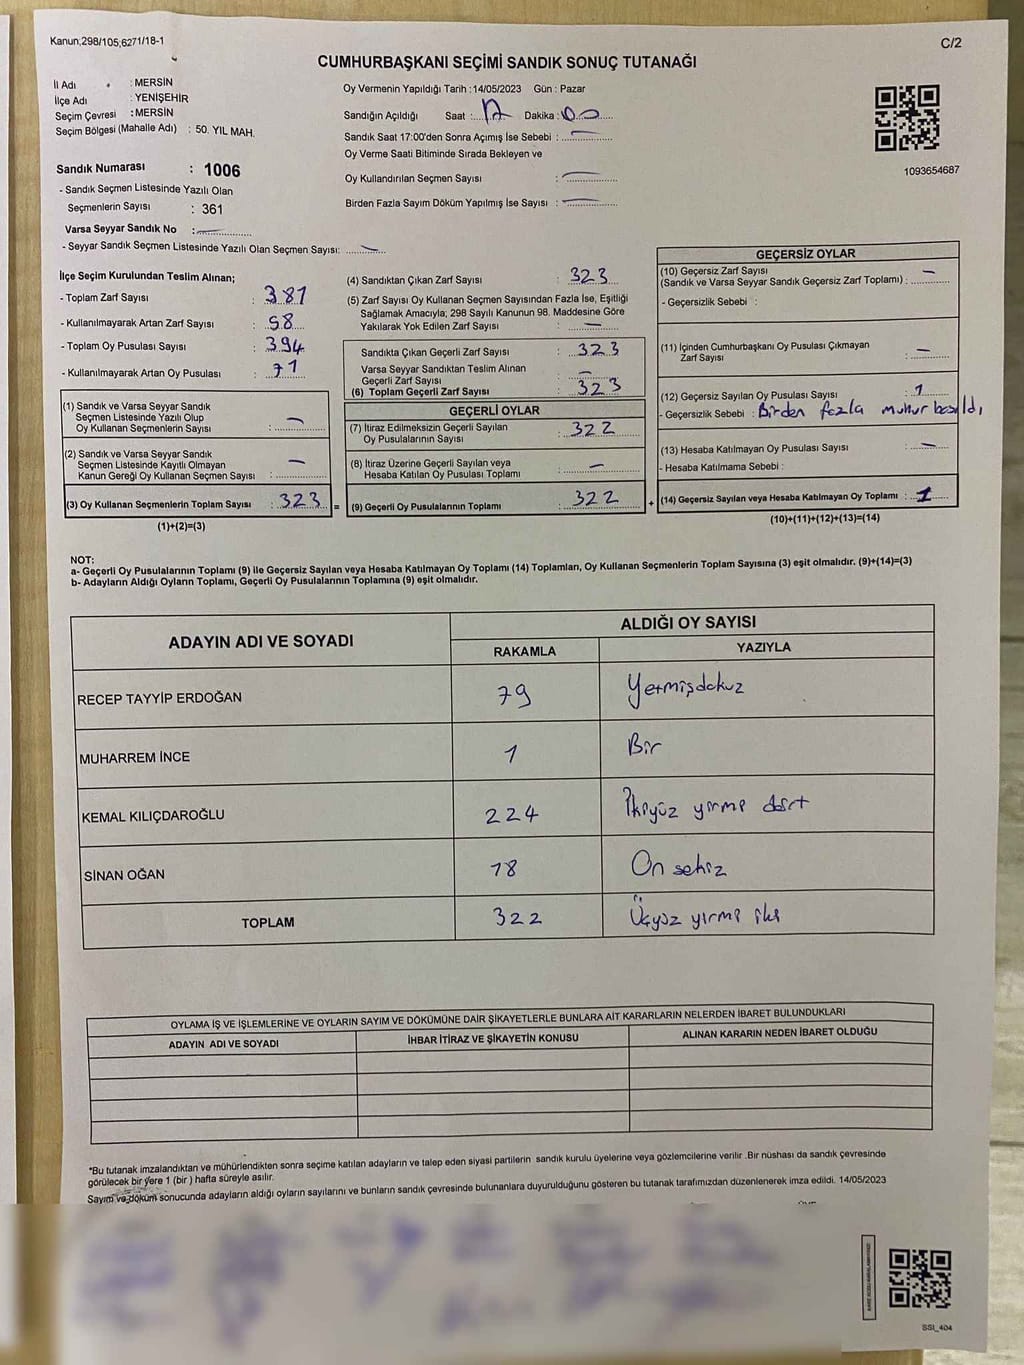 Kanun;298/105;6271/18-1
C/2
CUMHURBAŞKANI SEÇİMİ SANDIK SONUÇ TUTANAĞI
İl Adı : MERSİN
İlçe Adı : YENİŞEHİR
Seçim Çevresi : MERSİN
Seçim Bölgesi (Mahalle Adı) : 50. YIL MAH.
Sandık Numarası : 1006
- Sandık Seçmen Listesinde Yazılı Olan
Seçmenlerin Sayısı : 361
Varsa Seyyar Sandık No :
- Seyyar Sandık Seçmen Listesinde Yazılı Olan Seçmen Sayısı:
Oy Vermenin Yapıldığı Tarih : 14/05/2023 Gün : Pazar
Sandığın Açıldığı Saat : 17 Dakika : 00
Sandık Saat 17:00'den Sonra Açımış İse Sebebi :
Oy Verme Saati Bitiminde Sırada Bekleyen ve
Oy Kullandırılan Seçmen Sayısı :
Birden Fazla Sayım Döküm Yapılmış İse Sayısı :
1093654687
İlçe Seçim Kurulundan Teslim Alınan;
- Toplam Zarf Sayısı : 381
- Kullanılmayarak Artan Zarf Sayısı : 58
- Toplam Oy Pusulası Sayısı : 394
- Kullanılmayarak Artan Oy Pusulası : 71
(1) Sandık ve Varsa Seyyar Sandık
Seçmen Listesinde Yazılı Olup
Oy Kullanan Seçmenlerin Sayısı : –
(2) Sandık ve Varsa Seyyar Sandık
Seçmen Listesinde Kayıtlı Olmayan
Kanun Gereği Oy Kullanan Seçmen Sayısı : –
(3) Oy Kullanan Seçmenlerin Toplam Sayısı : 323 =
(1)+(2)=(3)
(4) Sandıktan Çıkan Zarf Sayısı : 323
(5) Zarf Sayısı Oy Kullanan Seçmen Sayısından Fazla İse, Eşitliği
Sağlamak Amacıyla; 298 Sayılı Kanunun 98. Maddesine Göre
Yakılarak Yok Edilen Zarf Sayısı : –
Sandıkta Çıkan Geçerli Zarf Sayısı : 323
Varsa Seyyar Sandıktan Teslim Alınan
Geçerli Zarf Sayısı : –
(6) Toplam Geçerli Zarf Sayısı : 323
GEÇERLİ OYLAR
(7) İtiraz Edilmeksizin Geçerli Sayılan
Oy Pusulalarının Sayısı : 322
(8) İtiraz Üzerine Geçerli Sayılan veya
Hesaba Katılan Oy Pusulası Toplamı : –
(9) Geçerli Oy Pusulalarının Toplamı : 322 +
GEÇERSİZ OYLAR
(10) Geçersiz Zarf Sayısı
(Sandık ve Varsa Seyyar Sandık Geçersiz Zarf Toplamı) : –
- Geçersizlik Sebebi :
(11) İçinden Cumhurbaşkanı Oy Pusulası Çıkmayan
Zarf Sayısı : –
(12) Geçersiz Sayılan Oy Pusulası Sayısı : 1
- Geçersizlik Sebebi : Birden fazla muhur basıldı
(13) Hesaba Katılmayan Oy Pusulası Sayısı : –
- Hesaba Katılmama Sebebi :
(14) Geçersiz Sayılan veya Hesaba Katılmayan Oy Toplamı : 1
(10)+(11)+(12)+(13)=(14)
NOT:
a- Geçerli Oy Pusulalarının Toplamı (9) ile Geçersiz Sayılan veya Hesaba Katılmayan Oy Toplamı (14) Toplamları, Oy Kullanan Seçmenlerin Toplam Sayısına (3) eşit olmalıdır. (9)+(14)=(3)
b- Adayların Aldığı Oyların Toplamı, Geçerli Oy Pusulalarının Toplamına (9) eşit olmalıdır.
ADAYIN ADI VE SOYADI
ALDIĞI OY SAYISI
RAKAMLA YAZIYLA
RECEP TAYYİP ERDOĞAN 79 Yetmişdokuz
MUHARREM İNCE 1 Bir
KEMAL KILIÇDAROĞLU 224 İkiyüz yirmi dört
SİNAN OĞAN 18 On sekiz
TOPLAM 322 Üçyüz yirmi iki
OYLAMA İŞ VE İŞLEMLERİNE VE OYLARIN SAYIM VE DÖKÜMÜNE DAİR ŞİKAYETLERLE BUNLARA AİT KARARLARIN NELERDEN İBARET BULUNDUKLARI
ADAYIN ADI VE SOYADI İHBAR İTİRAZ VE ŞİKAYETİN KONUSU ALINAN KARARIN NEDEN İBARET OLDUĞU
*Bu tutanak imzalandıktan ve mühürlendikten sonra seçime katılan adayların ve talep eden siyasi partilerin sandık kurulu üyelerine veya gözlemcilerine verilir .Bir nüshası da sandık çevresinde
görülecek bir yere 1 (bir ) hafta süreyle asılır.
Sayım ve döküm sonucunda adayların aldığı oyların sayılarını ve bunların sandık çevresinde bulunanlara duyurulduğunu gösteren bu tutanak tarafımızdan düzenlenerek imza edildi. 14/05/2023
SSI_404